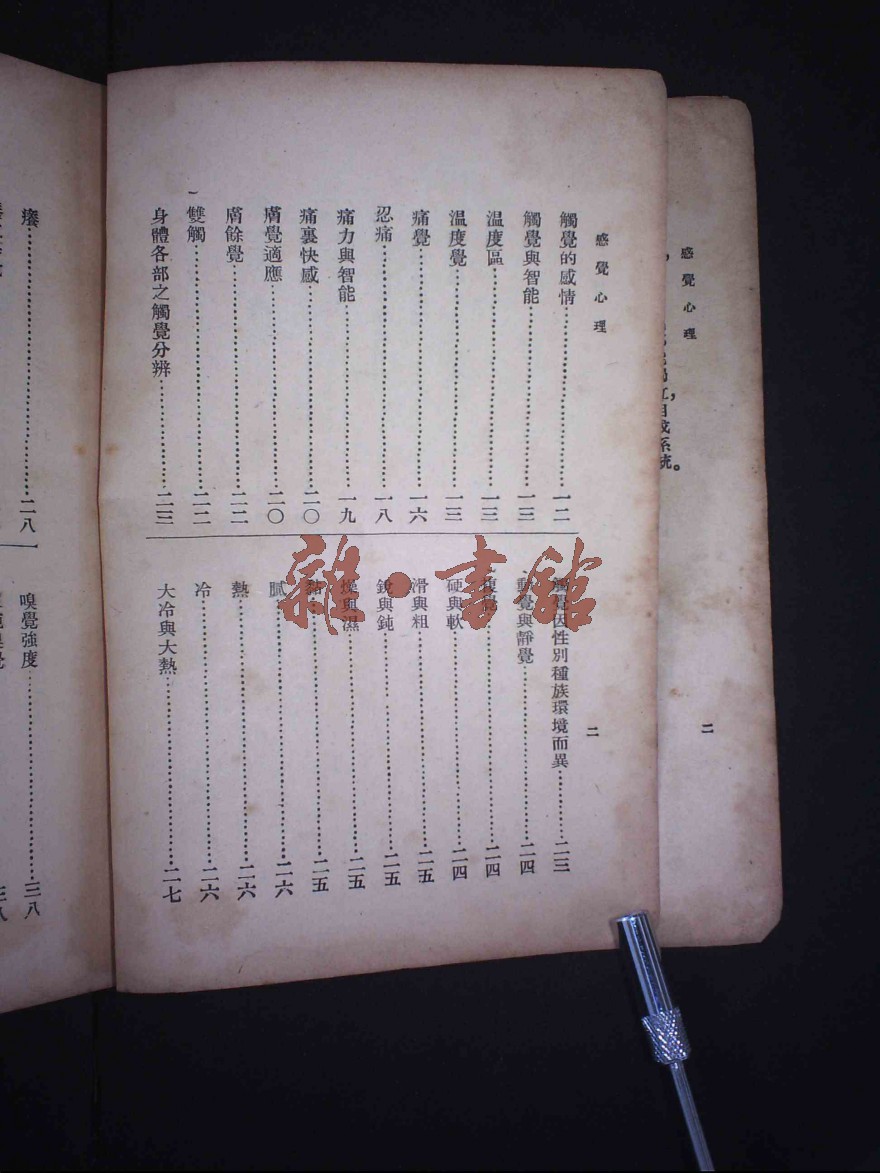 感覺心理
二
觸覺的感情…………一二
觸覺與智能…………一三
溫度區…………一三
溫度覺…………一三
痛覺…………一六
忍痛…………一八
痛力與智能…………一九
痛裏快感…………二〇
膚覺適應…………二〇
膚餘覺…………二二
雙觸…………二二
身體各部之觸覺分辨…………二三
觸覺因性別種族環境而異…………二三
動覺與靜覺…………二四
複覺…………二四
硬與軟…………二四
滑與粗…………二五
銳與鈍…………二五
燥與濕…………二五
黏…………二五
膩…………二六
熱…………二六
冷…………二六
大冷與大熱…………二七
癢…………二八
嗅覺強度…………三八
感覺心理
自成系統。
二
雜·書館